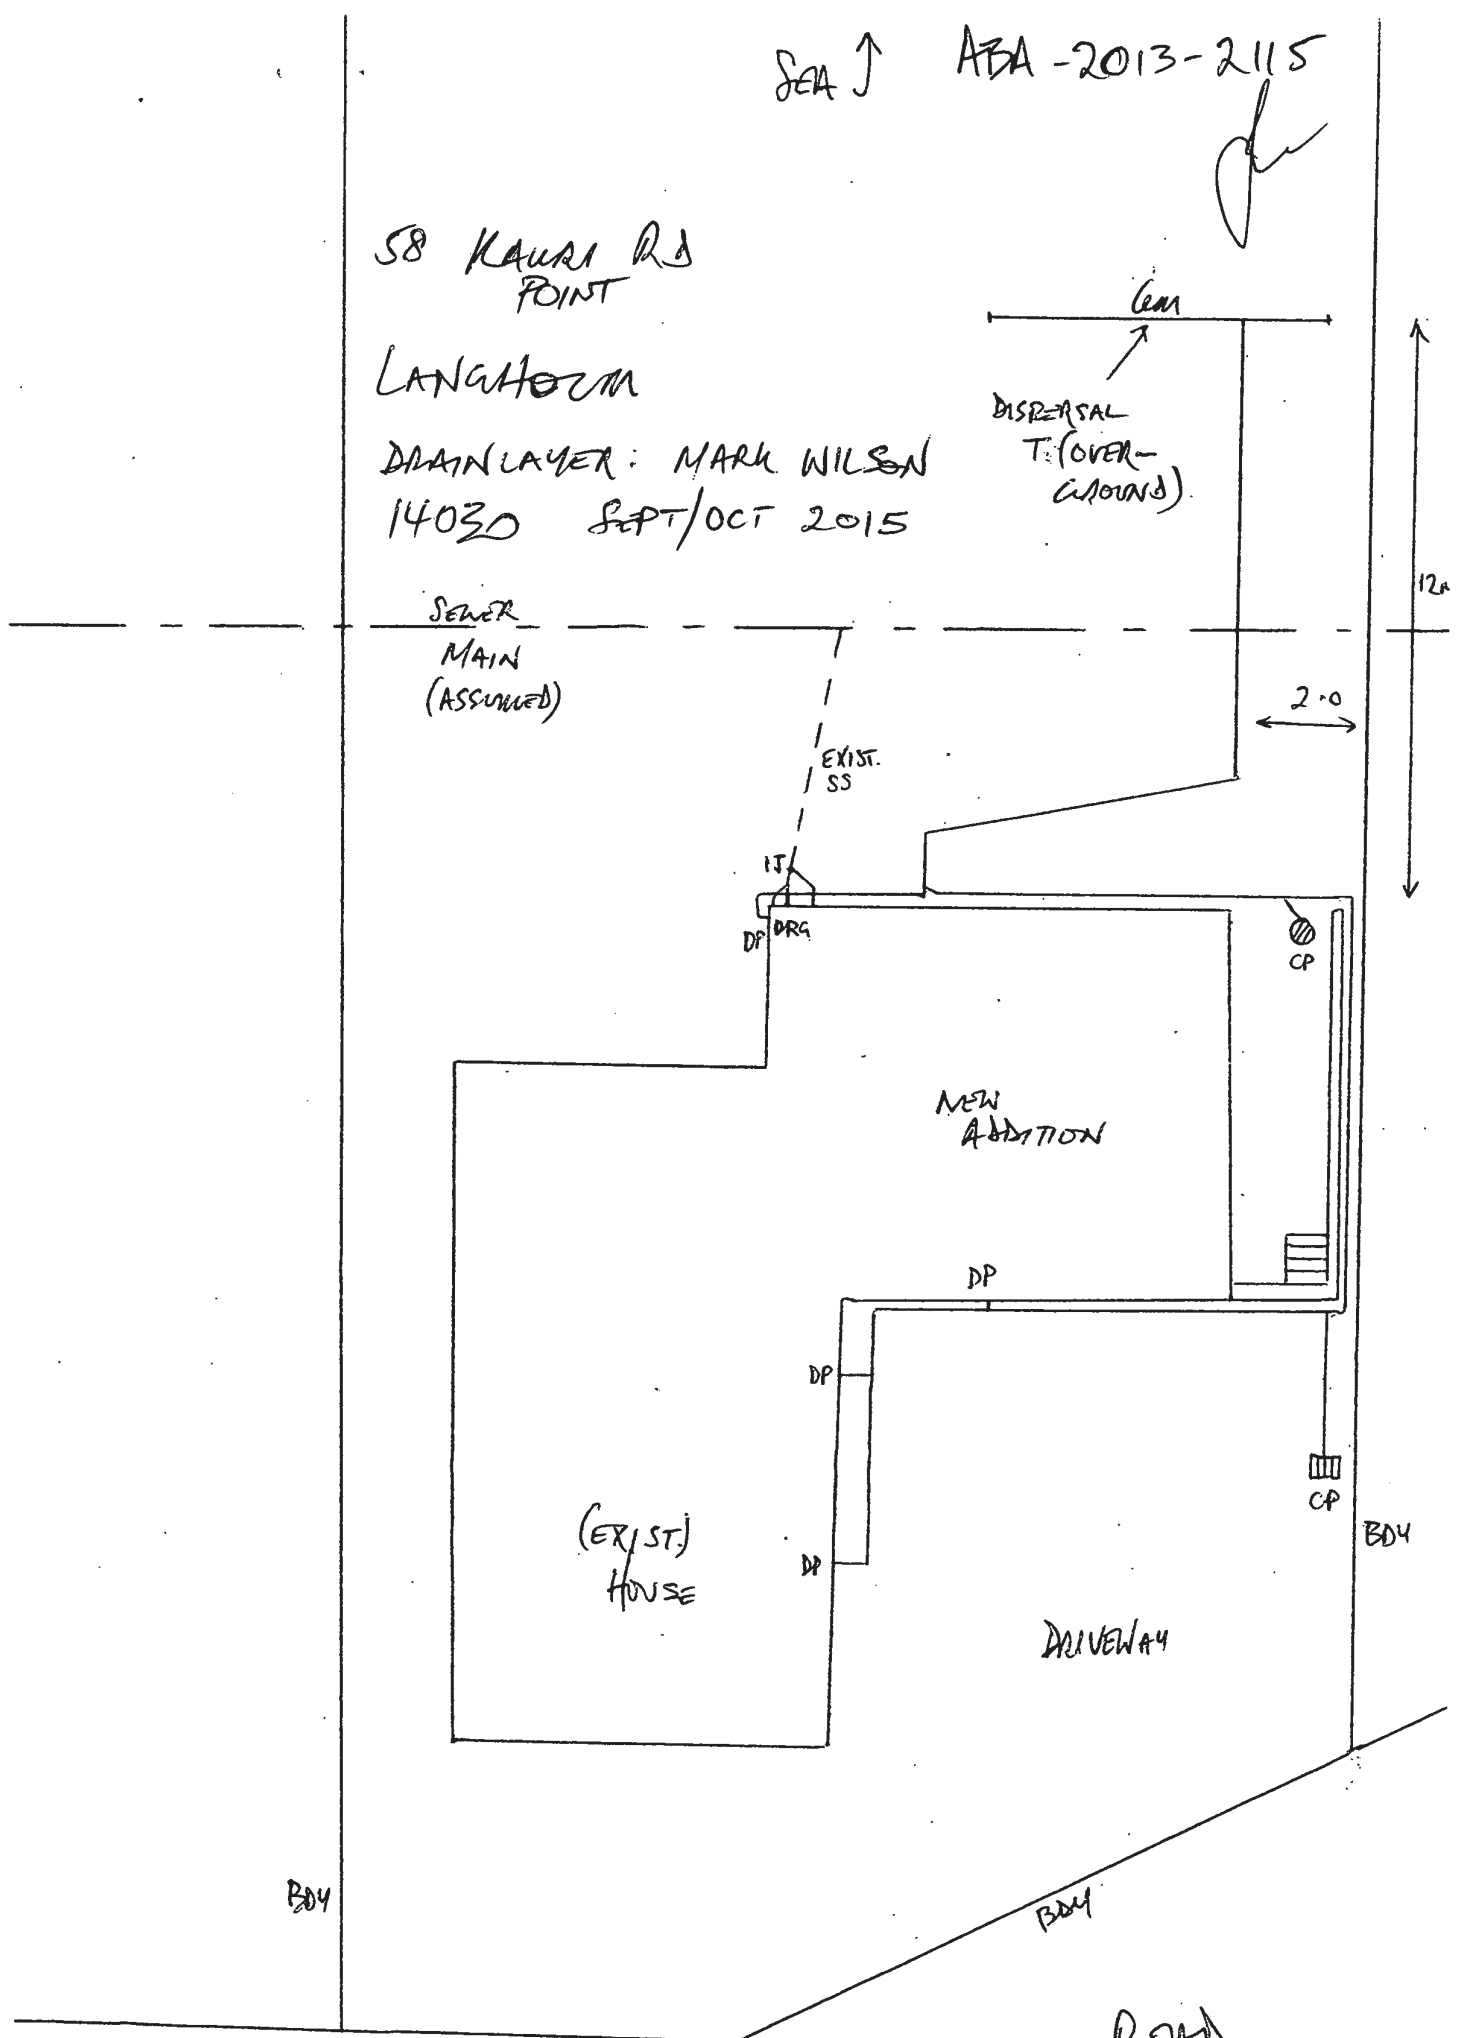 SEA
ABA-2013-2115
58 KAURI RD
POINT
LANGHOLM
DRAINLAYER: MARK WILSON
14030 SEPT/OCT 2015
6m
DISPERSAL
T (OVER-
GROUND)
12m
SEWER
MAIN
(ASSUMED)
2.0
EXIST.
SS
IJ
DP
DRG
CP
NEW
ADDITION
DP
DP
CP
BDY
(EXIST.)
HOUSE
DP
DRIVEWAY
BDY
BDY
Road